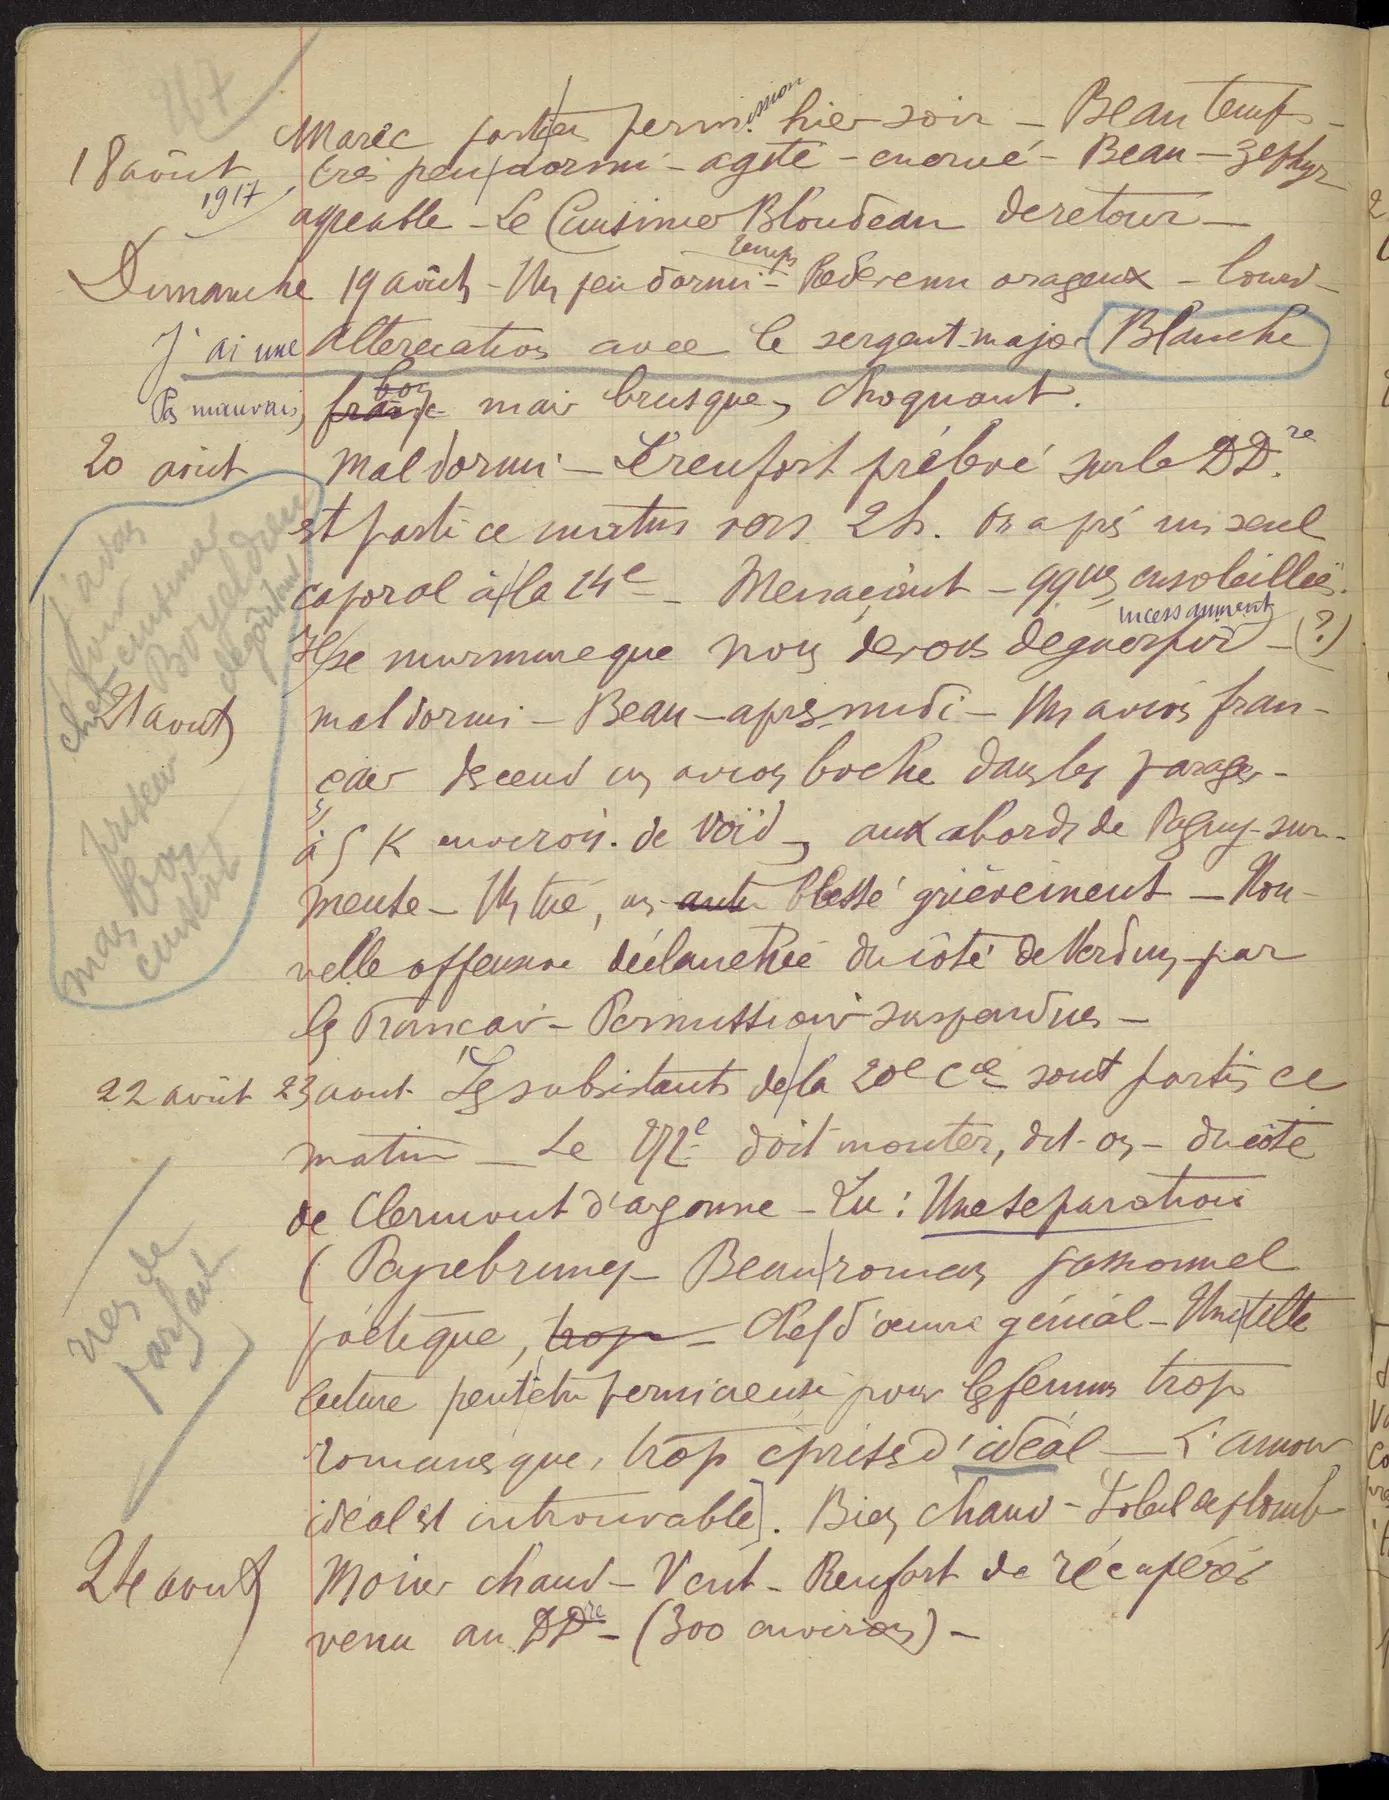 247
Marec parti en permission hier soir – Beau temps –
18 août 1917 très peu dormi – agité – enervé – Beau – zephyr
agréable – Le Cuisinier Blondeau de retour –
Dimanche 19 août – Un peu dormi – temps Redevenu orageux – lourd –
J'ai une altercation avec le sergent-major Blanche
Pas mauvais, bon mais brusque, choquant.
20 août mal dormi – Le renfort prélevé sur le DDre
est parti ce matin vers 2h. On a pris un seul
caporal à la 14e – Menaçant – qques ensoleillées.
Il se murmure que nous devons incessamment déguerpir – (?)
21 août mal dormi – Beau – après midi – Un avion fran-
çais descend un avion boche dans les parages –
à 5 K environ. de Void, aux abords de Pagny-sur-
meuse – Un tué, un autre blessé grièvement – Nou-
velle offensive déclanchée du côté de Verdun, par
les Français – Permissions suspendues –
j'avais
pour
chef-cuisinier
Boyeldieu
dégoûtant
priseur
mais bon
cuistot
22 août 23 août Les subsistants de la 20e Cie sont partis ce
matin – Le doit monter, dit-on – du côté
de Clermont d'argonne – Lu : Une séparation
( – Beau roman passionnel
poétique, trop – Chef d'œuvre génial – Une telle
lecture peut être pernicieuse pour les femmes trop
romanesque, trop éprises d'idéal – L'amour
idéal est introuvable]. Bien chaud – Soleil de plomb
parfait
24 août Moins chaud – Vent – Renfort de récupérés
venu au DDre – (300 environ) –